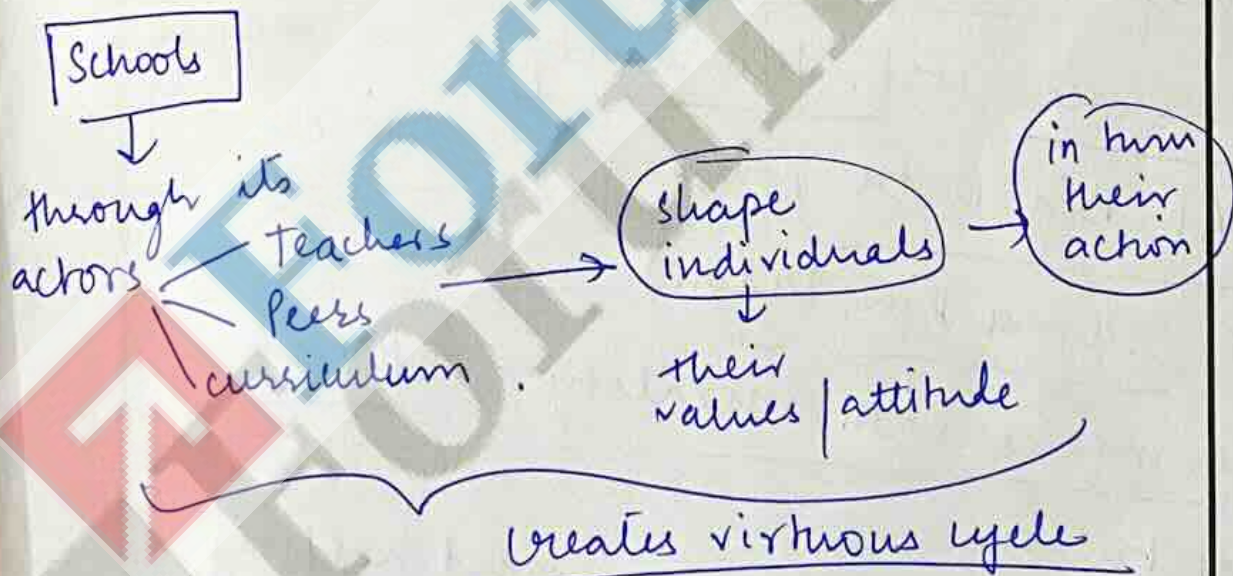 Schools
through its
actors
teachers
Peers
curriculum.
shape
individuals
their
values / attitude
in turn
their
action
creates virtuous cycle